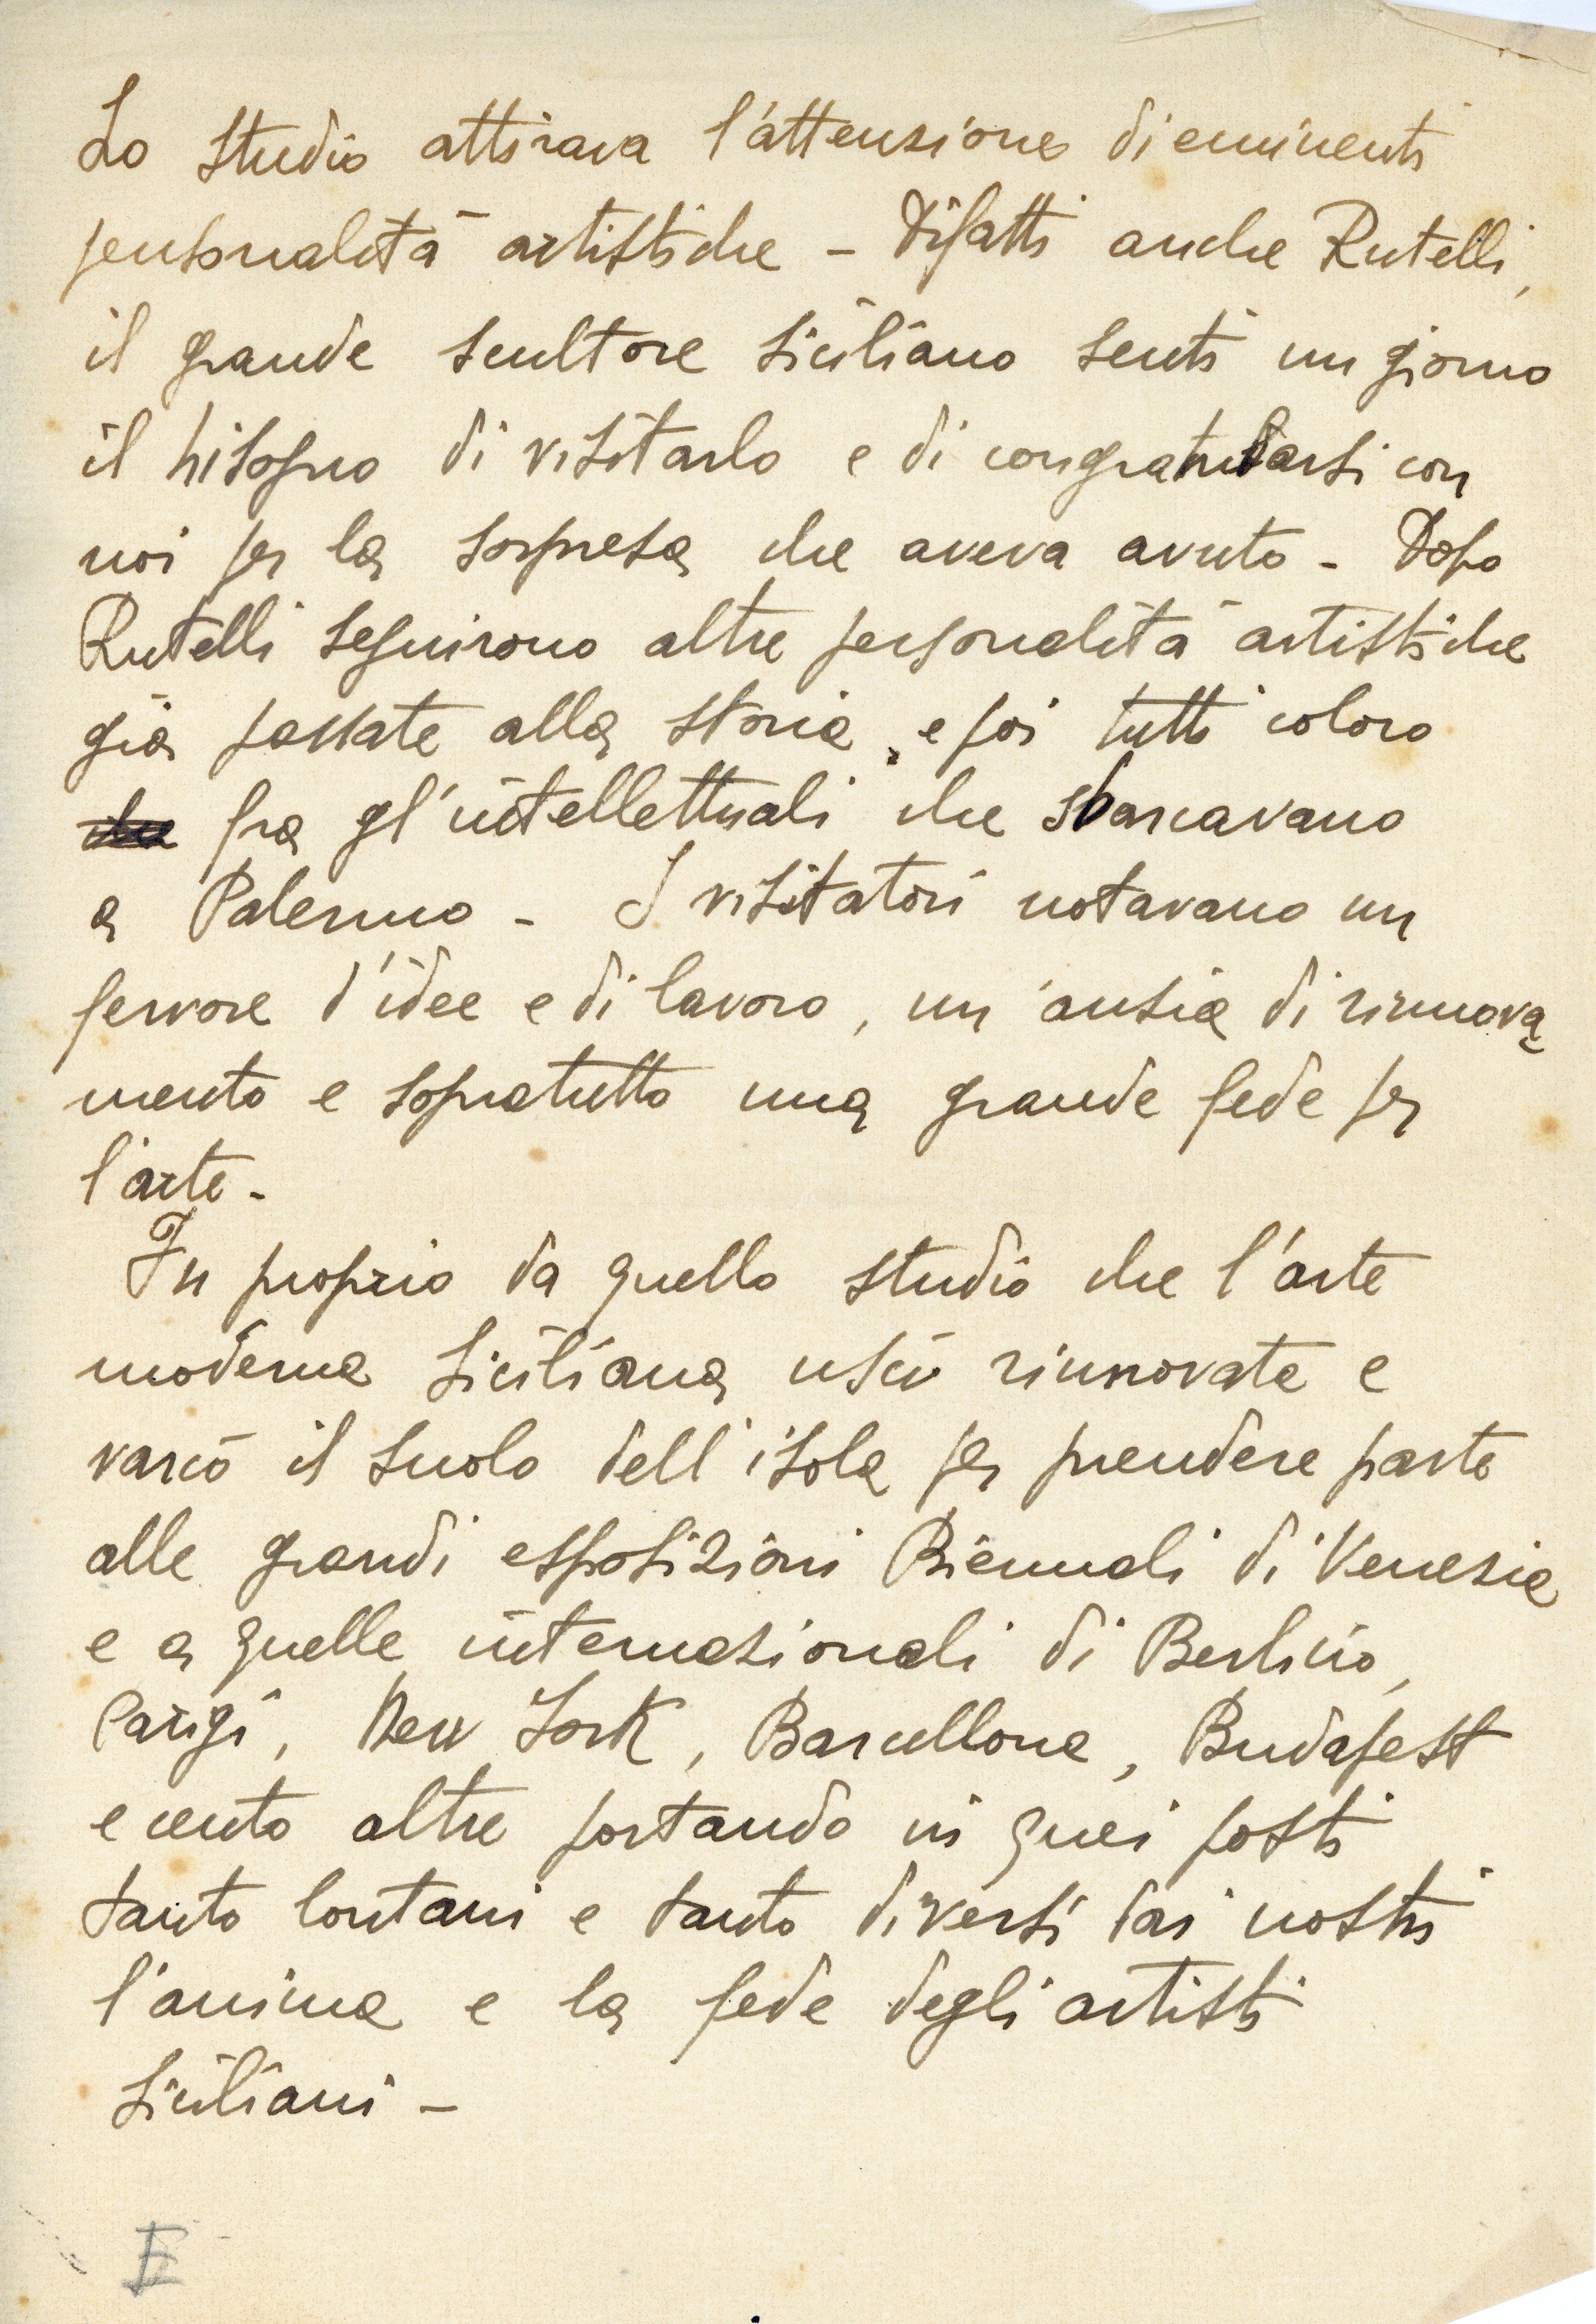 Lo studio attirava l'attenzione di eminenti
personalità artistiche - Difatti anche Rutelli,
il grande scultore siciliano sentì un giorno
il bisogno di visitarlo e di congratularsi con
noi per la sorpresa che aveva avuto - Dopo
Rutelli seguirono altre personalità artistiche
già passate alla storia, e poi tutti coloro
fra gl'intellettuali che sbarcavano
a Palermo - I visitatori notavano un
fervore d'idee e di lavoro, un'ansia di rinnova
mento e sopratutto una grande fede per
l'arte -
Fu proprio da quello studio che l'arte
moderna siciliana uscì rinnovata e
varcò il suolo dell'isola per prendere parte
alle grandi esposizioni Biennali di Venezia
e a quelle internazionali di Berlino,
Parigi, New York, Barcellona, Budapest
e cento altre portando in quei posti
tanto lontani e tanto diversi dai nostri
l'anima e la fede degli artisti
siciliani -